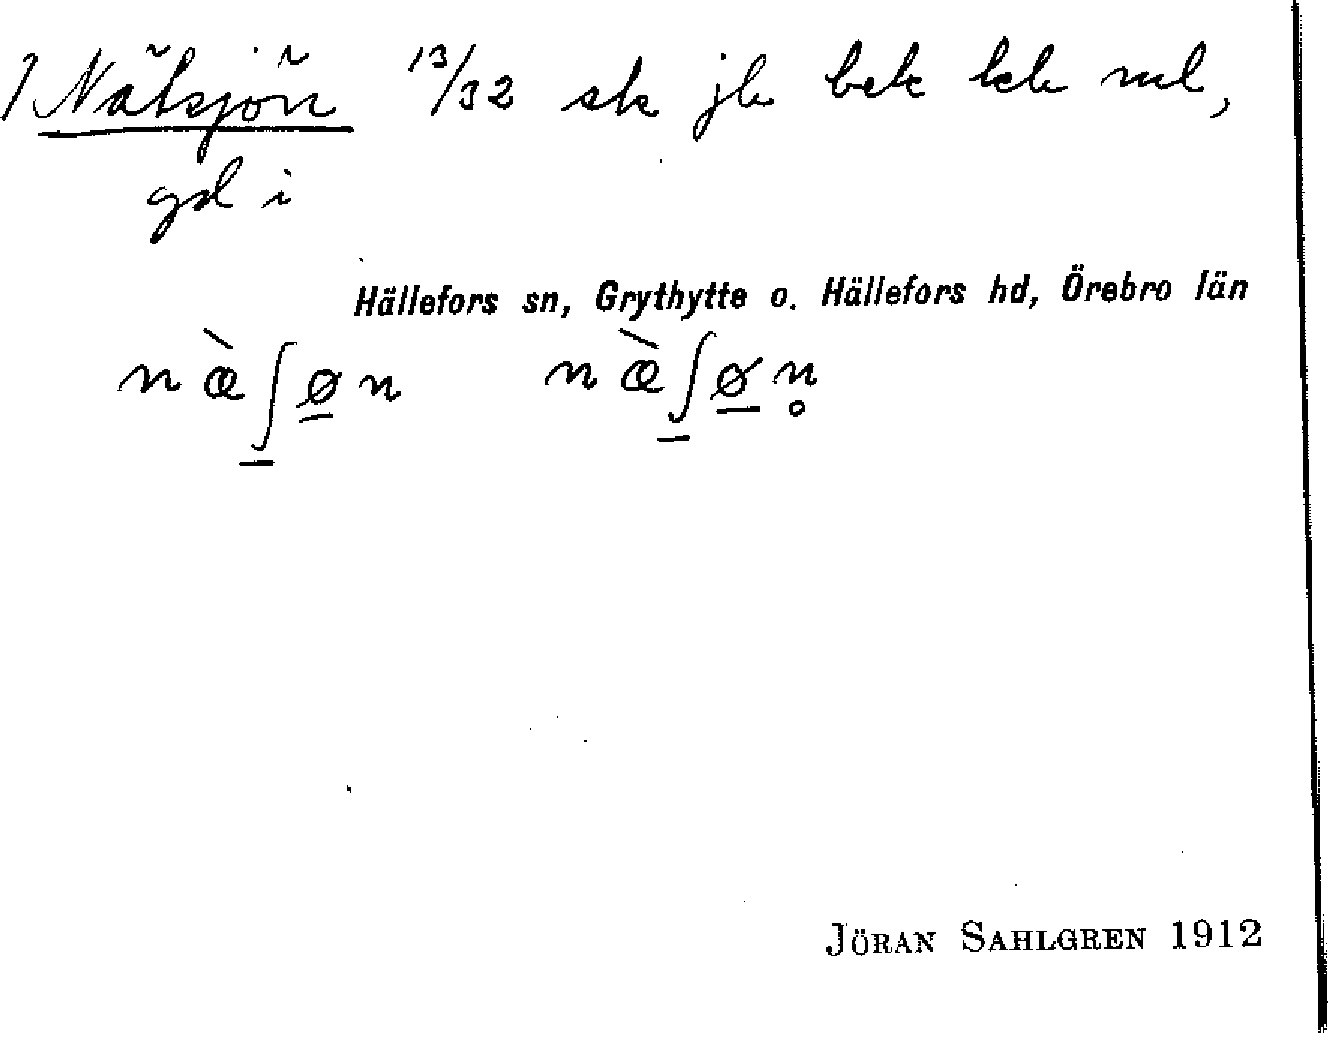 1 Nälsjön 13/32 sk jb bek kb ml,
gd i
Hällefors sn, Grythytte o. Hällefors hd, Örebro län
n æ̀ ʃ ø n n æ̀ ʃ ø n̥
JÖRAN SAHLGREN 1912